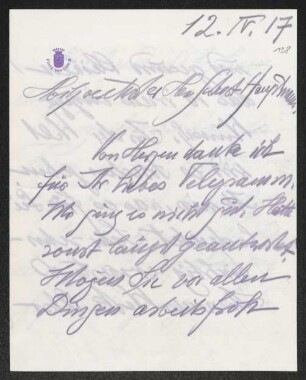 12. IV. 17
Hauptmann,
Von Herzen danke ich
für Ihr liebes Telegramm.
Mir ging es nicht gut. Hätte
sonst längst geantwortet.
Mögen Sie vor allen
Dingen arbeitsfroh